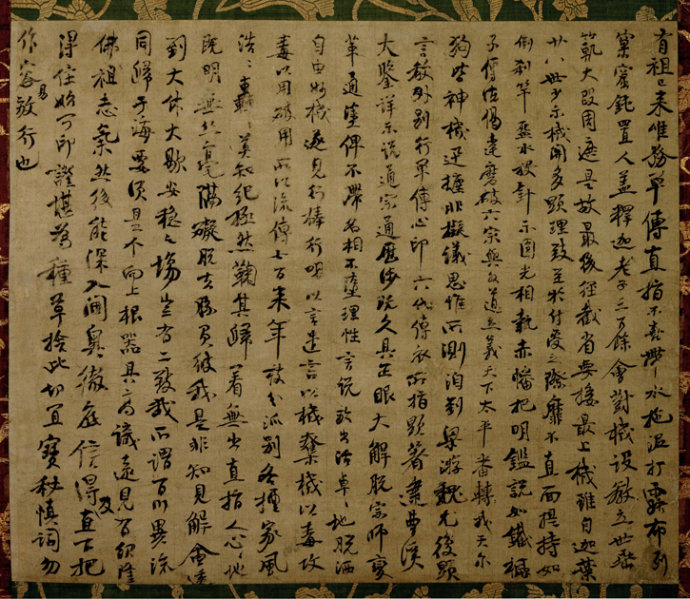 有祖已來唯務單傳直指不喜帶水拖泥打露布列
窠窟鈍置人蓋釋迦老子三百餘會對機設教立世垂
範大段周遮是故最後徑截省要接最上機雖自迦葉
廿八世少示機關多顯理致至於付受之際靡不直面提持如
倒刹竿盋水投針示圓光相執赤幡把明鑑說如鐵橛
子傳法偈達磨破六宗與外道立義天下太平番轉我天尒
狗皆神機迅捷非擬議思惟所測洎到梁游魏尤復顯
言教外別行單傳心印六代傳衣所指顯著逮曹溪
大鑒詳示說通宗通歷涉既久具正眼大解脫宗師變
革通塗俾不滯名相不墮理性言說放出活卓〻地脫洒
自由妙機遂見行棒行喝以言遣言以機奪機以毒攻
毒以用破用所以流傳七百來年枝分派別各擅家風
浩〻轟〻莫知紀極然鞠其歸著無出直指人心〻地
既明無絲毫隔礙脫去勝負彼我是非知見解會透
到大休大歇安穩之場豈有二致哉所謂百川異流
同歸于海要須是个向上根器具高識遠見有紹隆
佛祖志氣然後能深入閫奧徹底信得及直下把
得住始可印證堪為種草捨此切宜寶秘慎詞勿
作容易放行也